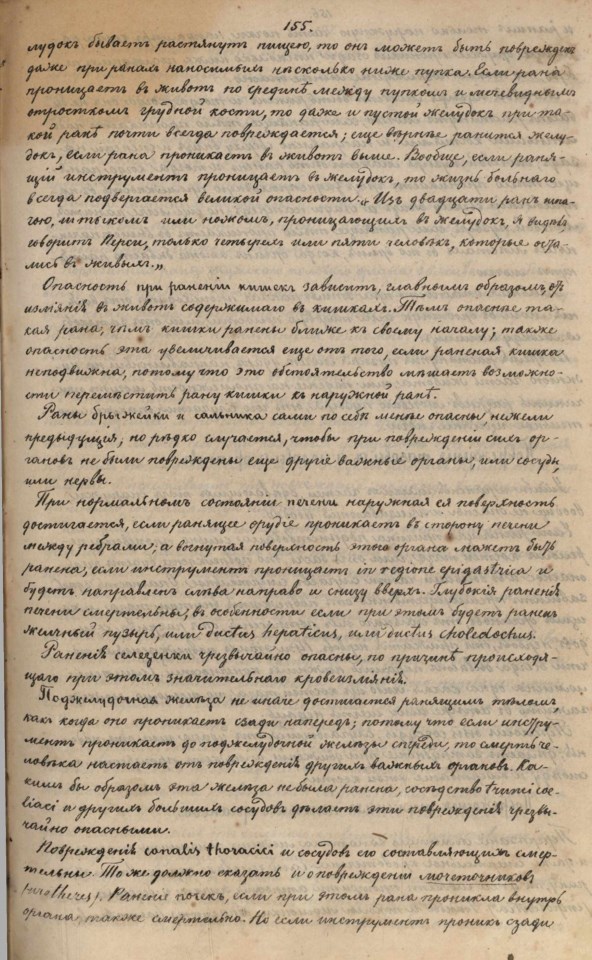 155.
лудокъ бываетъ растянутъ пищею, то онъ можетъ быть поврежденъ
даже при ранахъ наносимыхъ нѣсколько ниже пупка. Если рана
проницаетъ въ животъ по срединѣ между пупкомъ и мечевиднымъ
отросткомъ грудной кости, то даже и пустой желудокъ при та-
кой ранѣ почти всегда повреждается; еще вѣрнѣе ранится желу-
докъ, если рана проникаетъ въ животъ выше. Вообще, если раня-
щій инструментъ проницаетъ въ желудокъ, то жизнь больнаго
всегда подвергается великой опасности. „Изъ двадцати ранъ шпа-
гою, штыкомъ или ножомъ, проницающихъ въ желудокъ, я видѣлъ
говоритъ Перси, только четырехъ или пяти человѣкъ, которые оста-
лись въ живыхъ.„
Опасность при раненіи кишекъ зависитъ, главнымъ образомъ, отъ
изліянія въ животъ содержимаго въ кишкахъ. Тѣмъ опаснѣе та-
кая рана, чѣмъ кишки ранены ближе къ своему началу; также
опасность эта увеличивается еще отъ того, если раненая кишка
неподвижна, потому что это обстоятельство мѣшаетъ возможно-
сти перемѣстить рану кишки къ наружной ранѣ.
Раны брыжейки и сальника сами по себѣ менѣе опасны, нежели
предыдущія, но рѣдко случается, чтобы при поврежденіи сихъ ор-
гановъ не были повреждены еще другіе важные органы, или сосуды
или нервы.
При нормальномъ состояніи печени наружная ея поверхность
достигается, если ранящее орудіе проникаетъ въ сторону печени
между ребрами; а вогнутая поверхность этого органа можетъ быть
ранена, если инструментъ проницаетъ in regione epigastrica и
будетъ направленъ слѣва направо и снизу вверхъ. Глубокія раненія
печени смертельны, въ особенности если при этомъ будетъ раненъ
желчный пузырь, или ductus hepaticus, или ductus choledochus.
Раненія селезенки чрезвычайно опасны, по причинѣ происходя-
щаго при этомъ значительнаго кровеизліянія.
Поджелудочная желѣза не иначе достигается ранящимъ тѣломъ,
какъ когда оно проникаетъ сзади напередъ; потому что если инстру-
ментъ проникаетъ до поджелудочной желѣзы спереди, то смерть че-
ловѣка настаетъ отъ поврежденія другихъ важныхъ органовъ. Ка-
кимъ бы образомъ эта желѣза не была ранена, сосѣдство trunci coe-
liaci и другихъ большихъ сосудовъ дѣлаетъ эти поврежденія чрезвы-
чайно опасными.
Поврежденія canalis thoracici и сосудовъ его составляющихъ смер-
тельны. Тоже должно сказать и о поврежденіи мочеточниковъ
Раненіе почекъ, если при этомъ рана проникла внутрь
органа, также смертельно. Но если инструментъ проникъ сзади